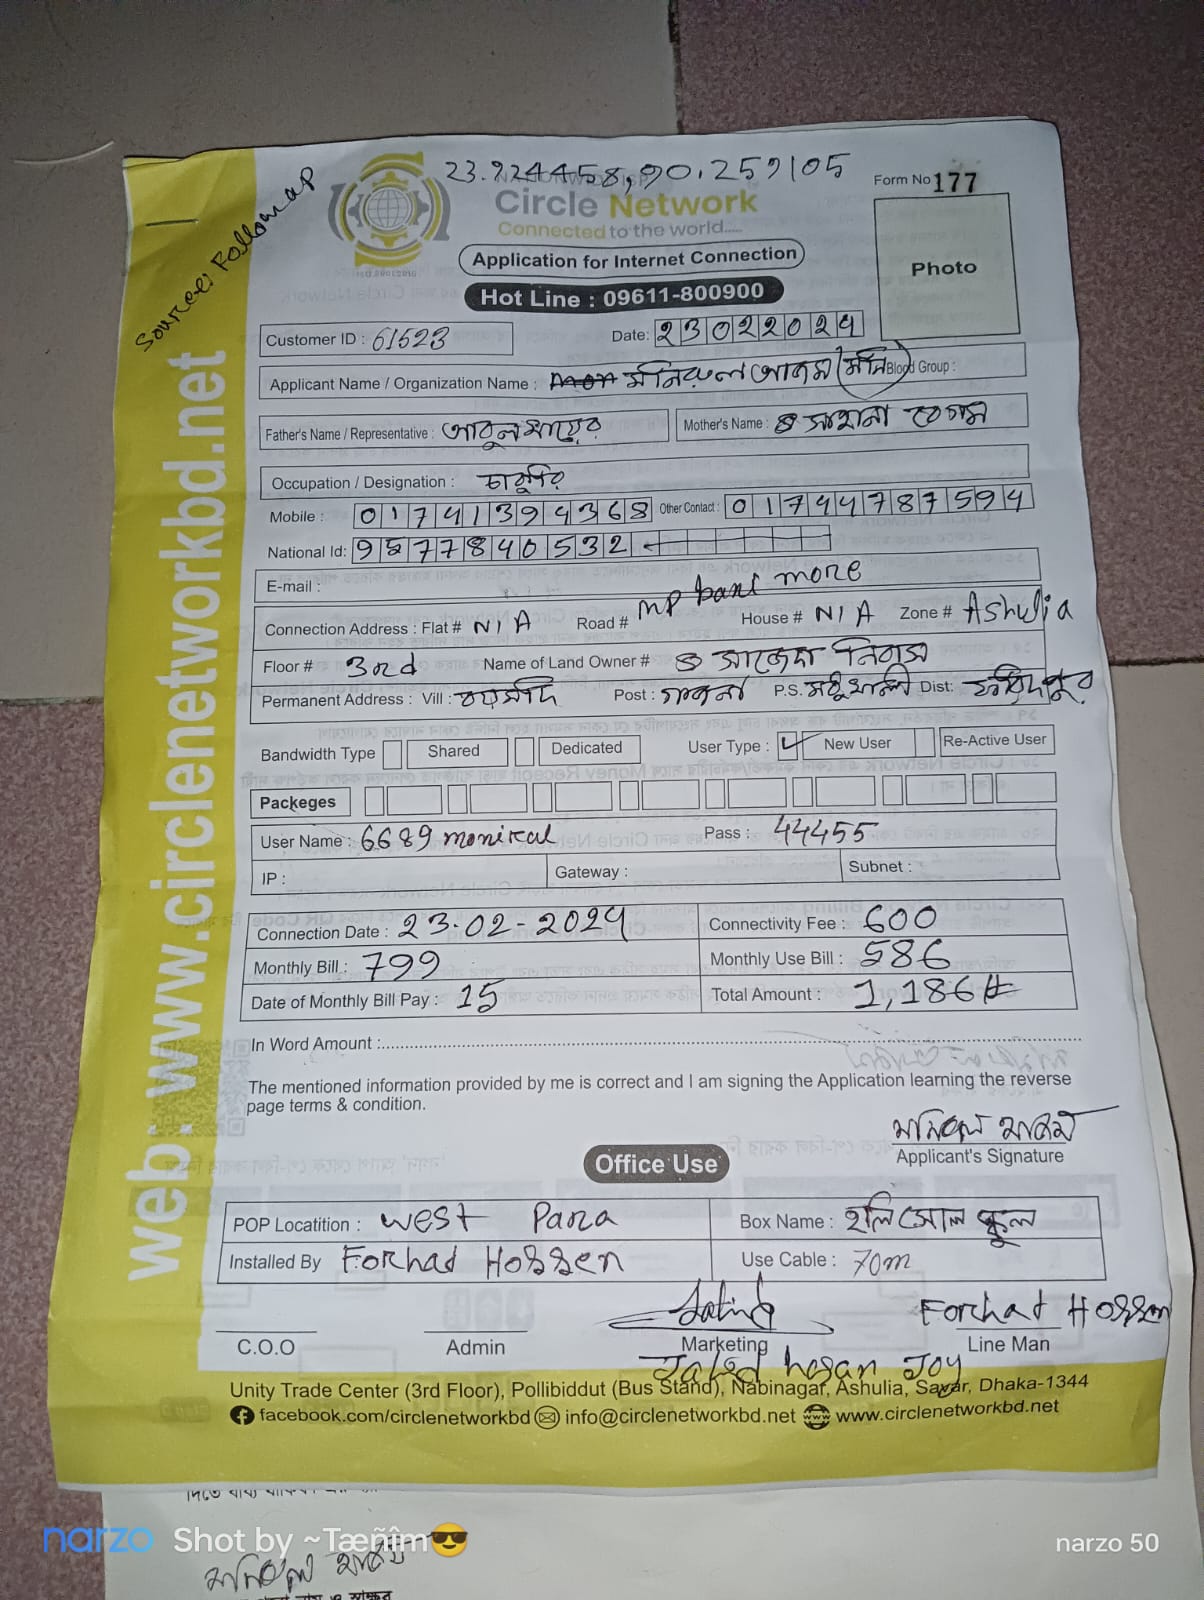 23.924458,90.259105
Source: Follow aP
Form No 177
Circle Network
Connected to the world.....
Application for Internet Connection
Photo
Hot Line : 09611-800900
Customer ID : 61523
Date: 23022024
Applicant Name / Organization Name : মনিরুল আলম (মনি) Blood Group :
Father's Name / Representative : আবুল খায়ের
Mother's Name : সাহানা বেগম
Occupation / Designation :
Mobile : 01741394368 Other Contact : 01744787594
National Id: 9577840532
E-mail :
Connection Address : Flat # N/A Road # MP more House # N/A Zone # Ashulia
Floor # 3rd Name of Land Owner # সাজেদা নিবাস
Permanent Address : Vill : Post : P.S. মধুখালী Dist: ফরিদপুর
Bandwidth Type Shared Dedicated User Type : New User Re-Active User
Packeges
User Name : 6689 monirul Pass : 44455
IP : Gateway : Subnet :
Connection Date : 23-02-2024 Connectivity Fee : 600
Monthly Bill : 799 Monthly Use Bill : 586
Date of Monthly Bill Pay : 15 Total Amount : 1,186/-
In Word Amount :
The mentioned information provided by me is correct and I am signing the Application learning the reverse
page terms & condition.
মনিরুল আলম
Applicant's Signature
Office Use
POP Locatition : West Para Box Name : হলি সোল স্কুল
Installed By Forhad Hossen Use Cable : 70m
Forhad Hossen
C.O.O Admin Marketing Line Man
Jahid hasan Joy
Unity Trade Center (3rd Floor), Pollibiddut (Bus Stand), Nabinagar, Ashulia, Savar, Dhaka-1344
facebook.com/circlenetworkbd info@circlenetworkbd.net www.circlenetworkbd.net
web: www.circlenetworkbd.net
narzo Shot by ~Tæñîm😎
narzo 50
মনিরুল আলম